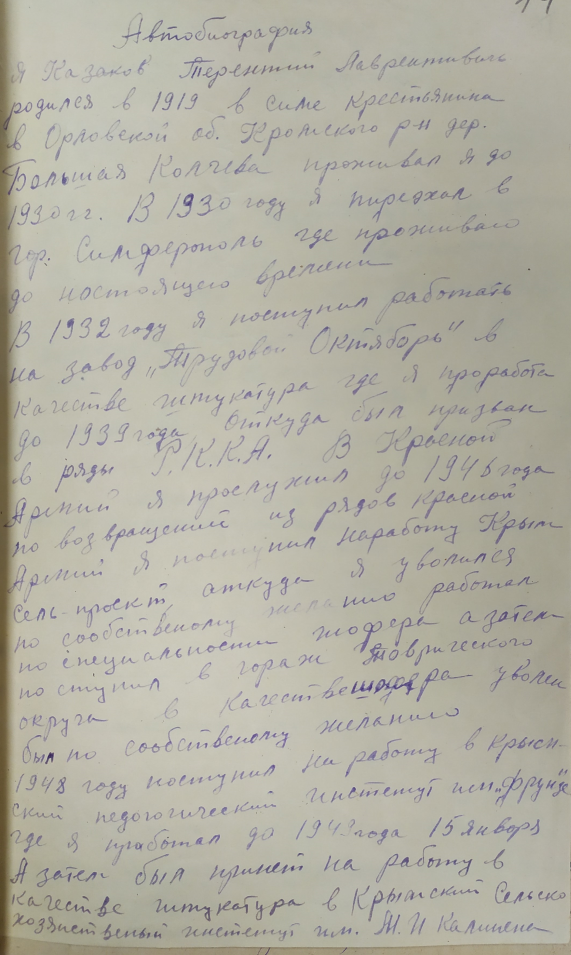 Автобиография
Я Казаков Терентий Лаврентивич
родился в 1919 в симе крестьянина
в Орловской об. Кромского р-н дер.
Большая Колчева проживал я до
1930 гг. В 1930 году я пиреехал в
гор. Симферополь где проживаю
до настоящего времени
В 1932 году я поступил работать
на завод „Трудовой Октябрь" в
качестве штукатура где я проработа
до 1939 года, откуда был призван
в ряды Р.К.К.А. В Красной
Армий я прослужил до 1946 года
по возвращений из рядов Красной
Армий я поступил наработу Крым
сель-проект, аткуда я уволился
по сообственому желанию работал
по специальности шофера а затем
поступил в гораж Товрического
округа в качестве шофера уволен
был по сообственому желанию
1948 году поступил на работу в Крым-
ский педогогический инстетут им. „Фрунзе"
где я работал до 1949 года 15 января
А затем был принет на работу в
качестве штукатура в Крымский Сельско
хозяйственый инстетут им. М.И Калинена